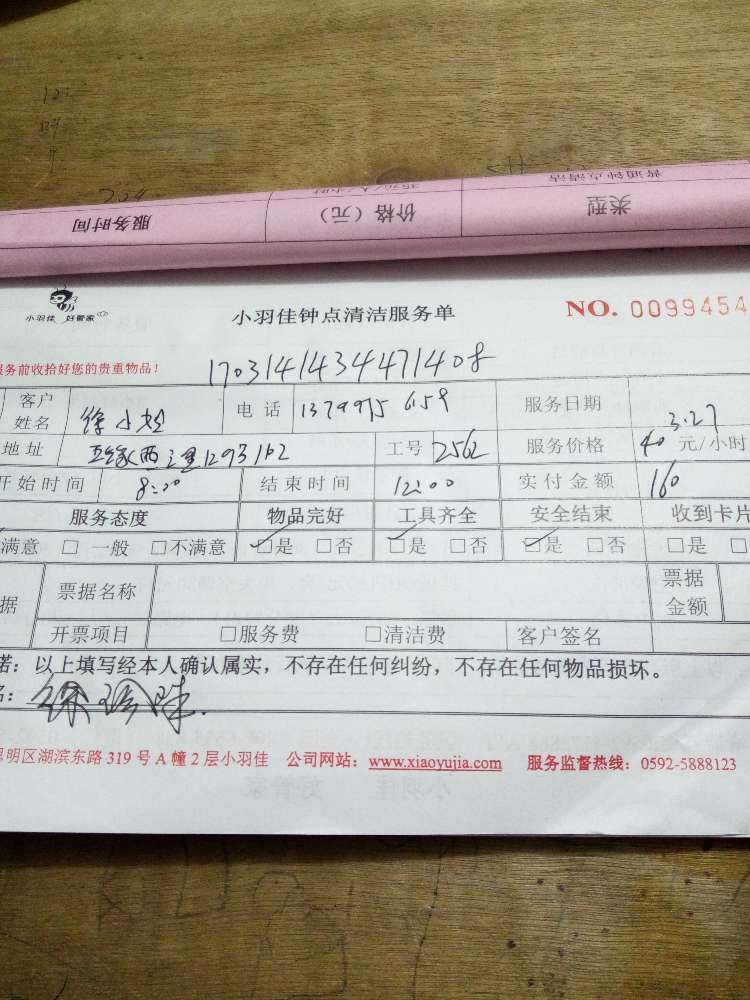 服务时间 价格（元） 类型
小羽佳 好管家
小羽佳钟点清洁服务单
NO. 0099454
服务前收拾好您的贵重物品！
170314143447140
客户姓名 徐小姐 电话 服务日期 3.27
地址 工号 2562 服务价格 40 元/小时
开始时间 8:00 结束时间 12:00 实付金额 160
服务态度 物品完好 工具齐全 安全结束 收到卡片
满意 □ 一般 □不满意 ☑是 □否 ☑是 □否 ☑是 □否 □是 □
据 票据名称 票据金额
开票项目 □服务费 □清洁费 客户签名
诺：以上填写经本人确认属实，不存在任何纠纷，不存在任何物品损坏。
名：
思明区湖滨东路 319 号 A 幢 2 层小羽佳 公司网站：www.xiaoyujia.com 服务监督热线：0592-5888123